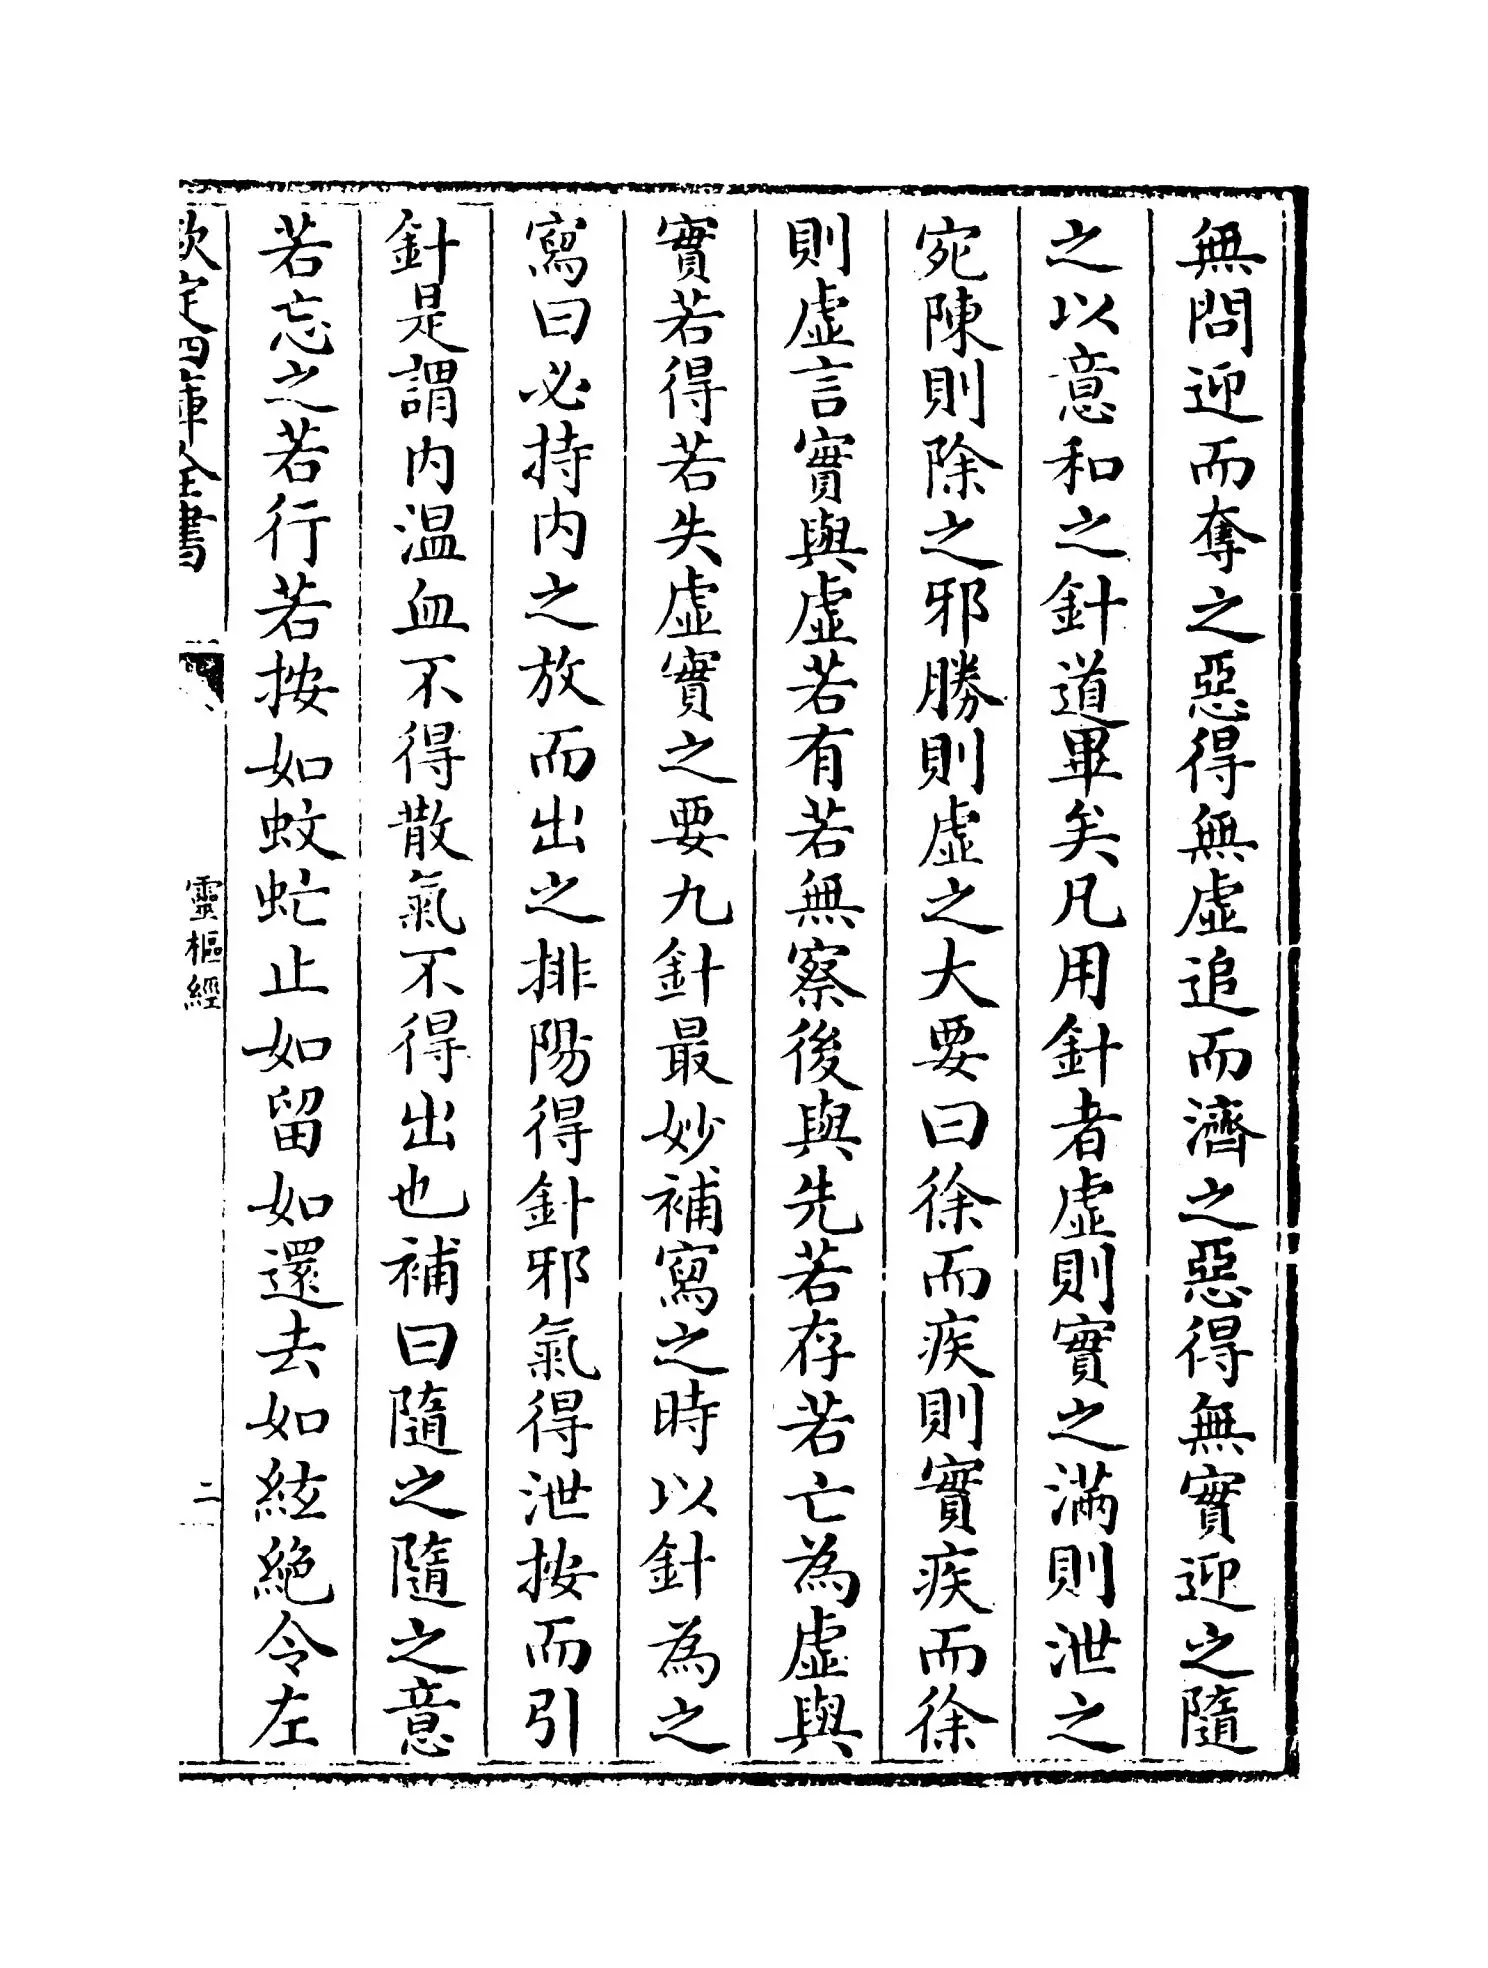 無問迎而奪之惡得無虛追而濟之惡得無實迎之隨
之以意和之針道畢矣凡用針者虛則實之滿則泄之
宛陳則除之邪勝則虛之大要曰徐而疾則實疾而徐
則虛言實與虛若有若無察後與先若存若亡為虛與
實若得若失虛實之要九針最妙補寫之時以針為之
寫曰必持內之放而出之排陽得針邪氣得泄按而引
針是謂內温血不得散氣不得出也補曰隨之隨之意
若忘之若行若按如蚊虻止如留如還去如絃絶令左
欽定四庫全書
靈樞經
二